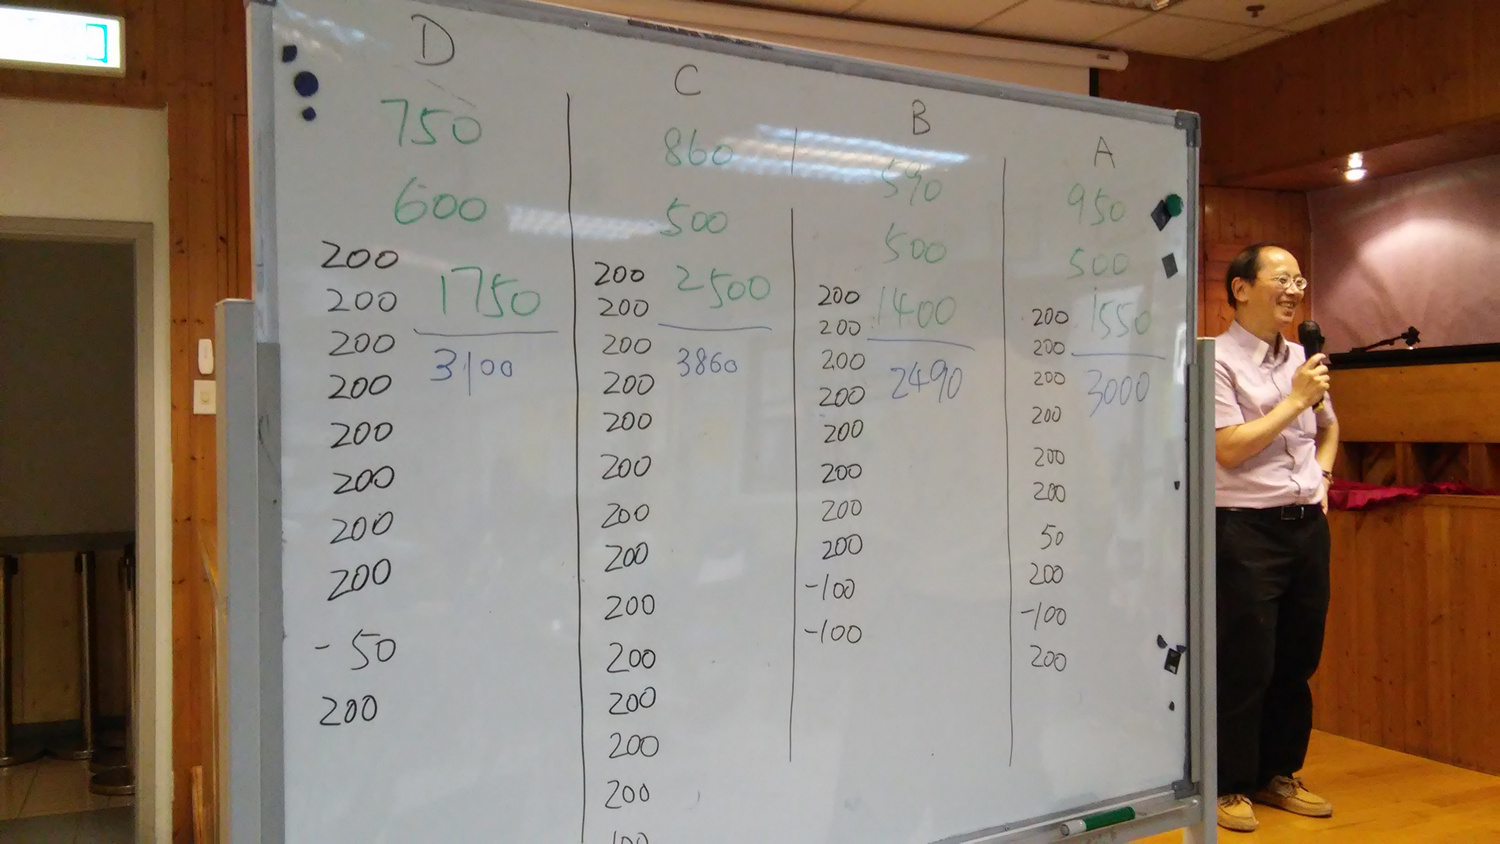 D
750
600
200
200
1750
200
3100
200
200
200
200
200
- 50
200
C
860
500
200
2500
200
200
3860
200
200
200
200
200
200
200
200
200
200
100
B
590
500
200
1400
200
200
2490
200
200
200
200
200
-100
-100
A
950
500
200
1550
200
200
3000
200
200
200
50
200
-100
200